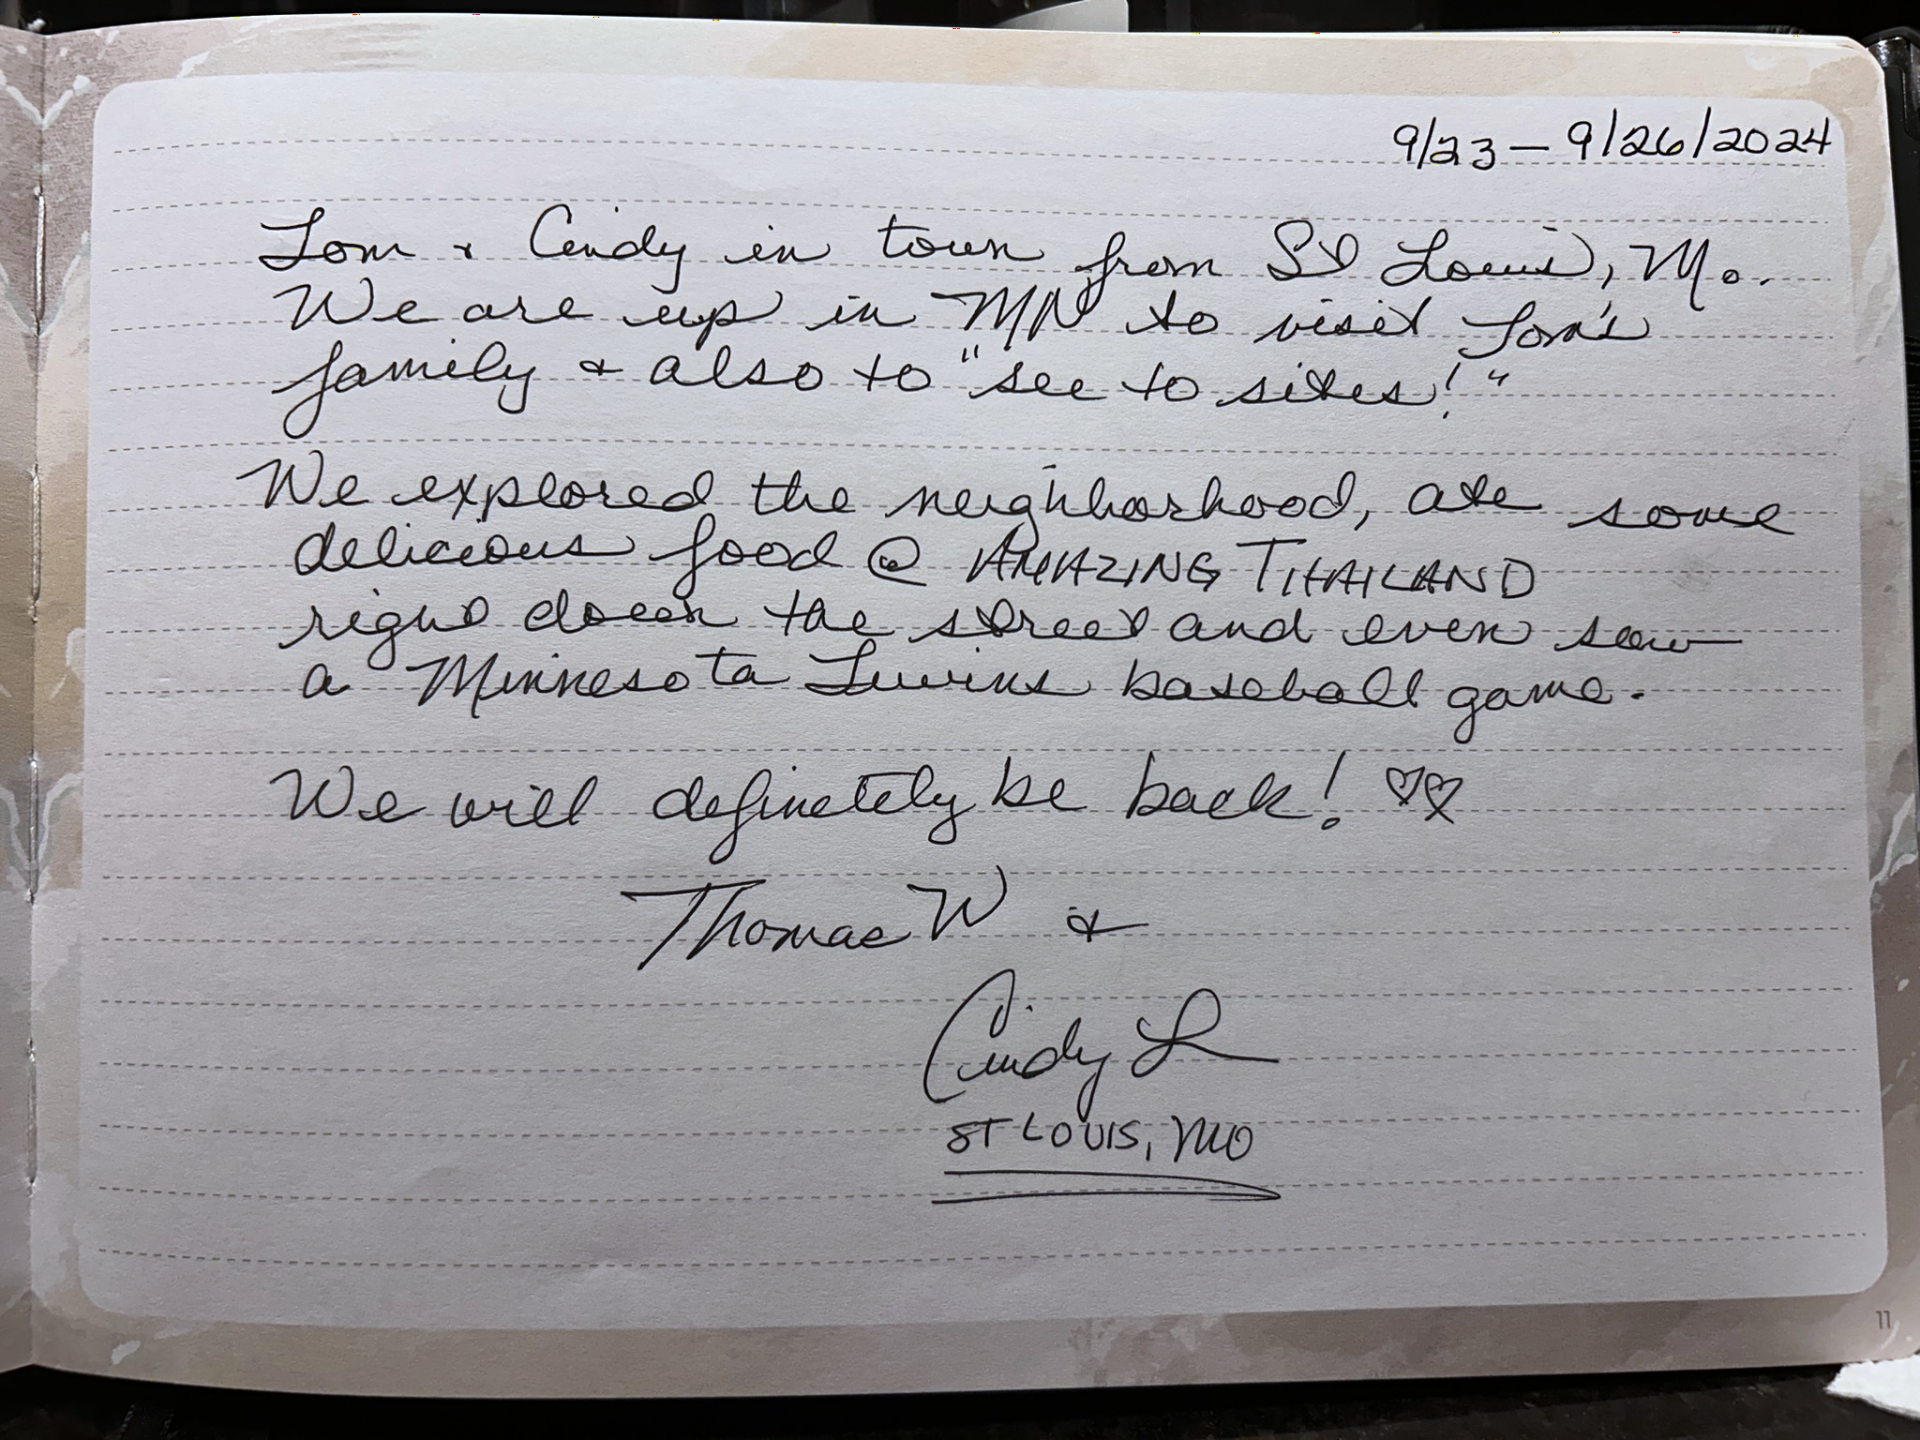 9/23 - 9/26/2024
Tom & Cindy in town from St Louis, Mo.
We are up in MN to visit Tom's
family & also to "see to sites!"
We explored the neighborhood, ate some
delicious food @ AMAZING THAILAND
right down the street and even saw
a Minnesota Twins baseball game.
We will definetely be back! ♡♡
Thomas W &
Cindy L
ST LOUIS, MO
11